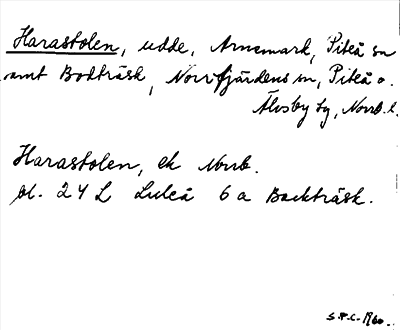 Harastolen, udde, Arnemark, Piteå sn
samt Bodträsk, Norrfjärdens sn, Piteå o.
Älvsby tg, Norrb. l.
Harastolen, ek Norrb.
bl. 24 L Luleå 6a Backträsk.
S.P.C. 1960.